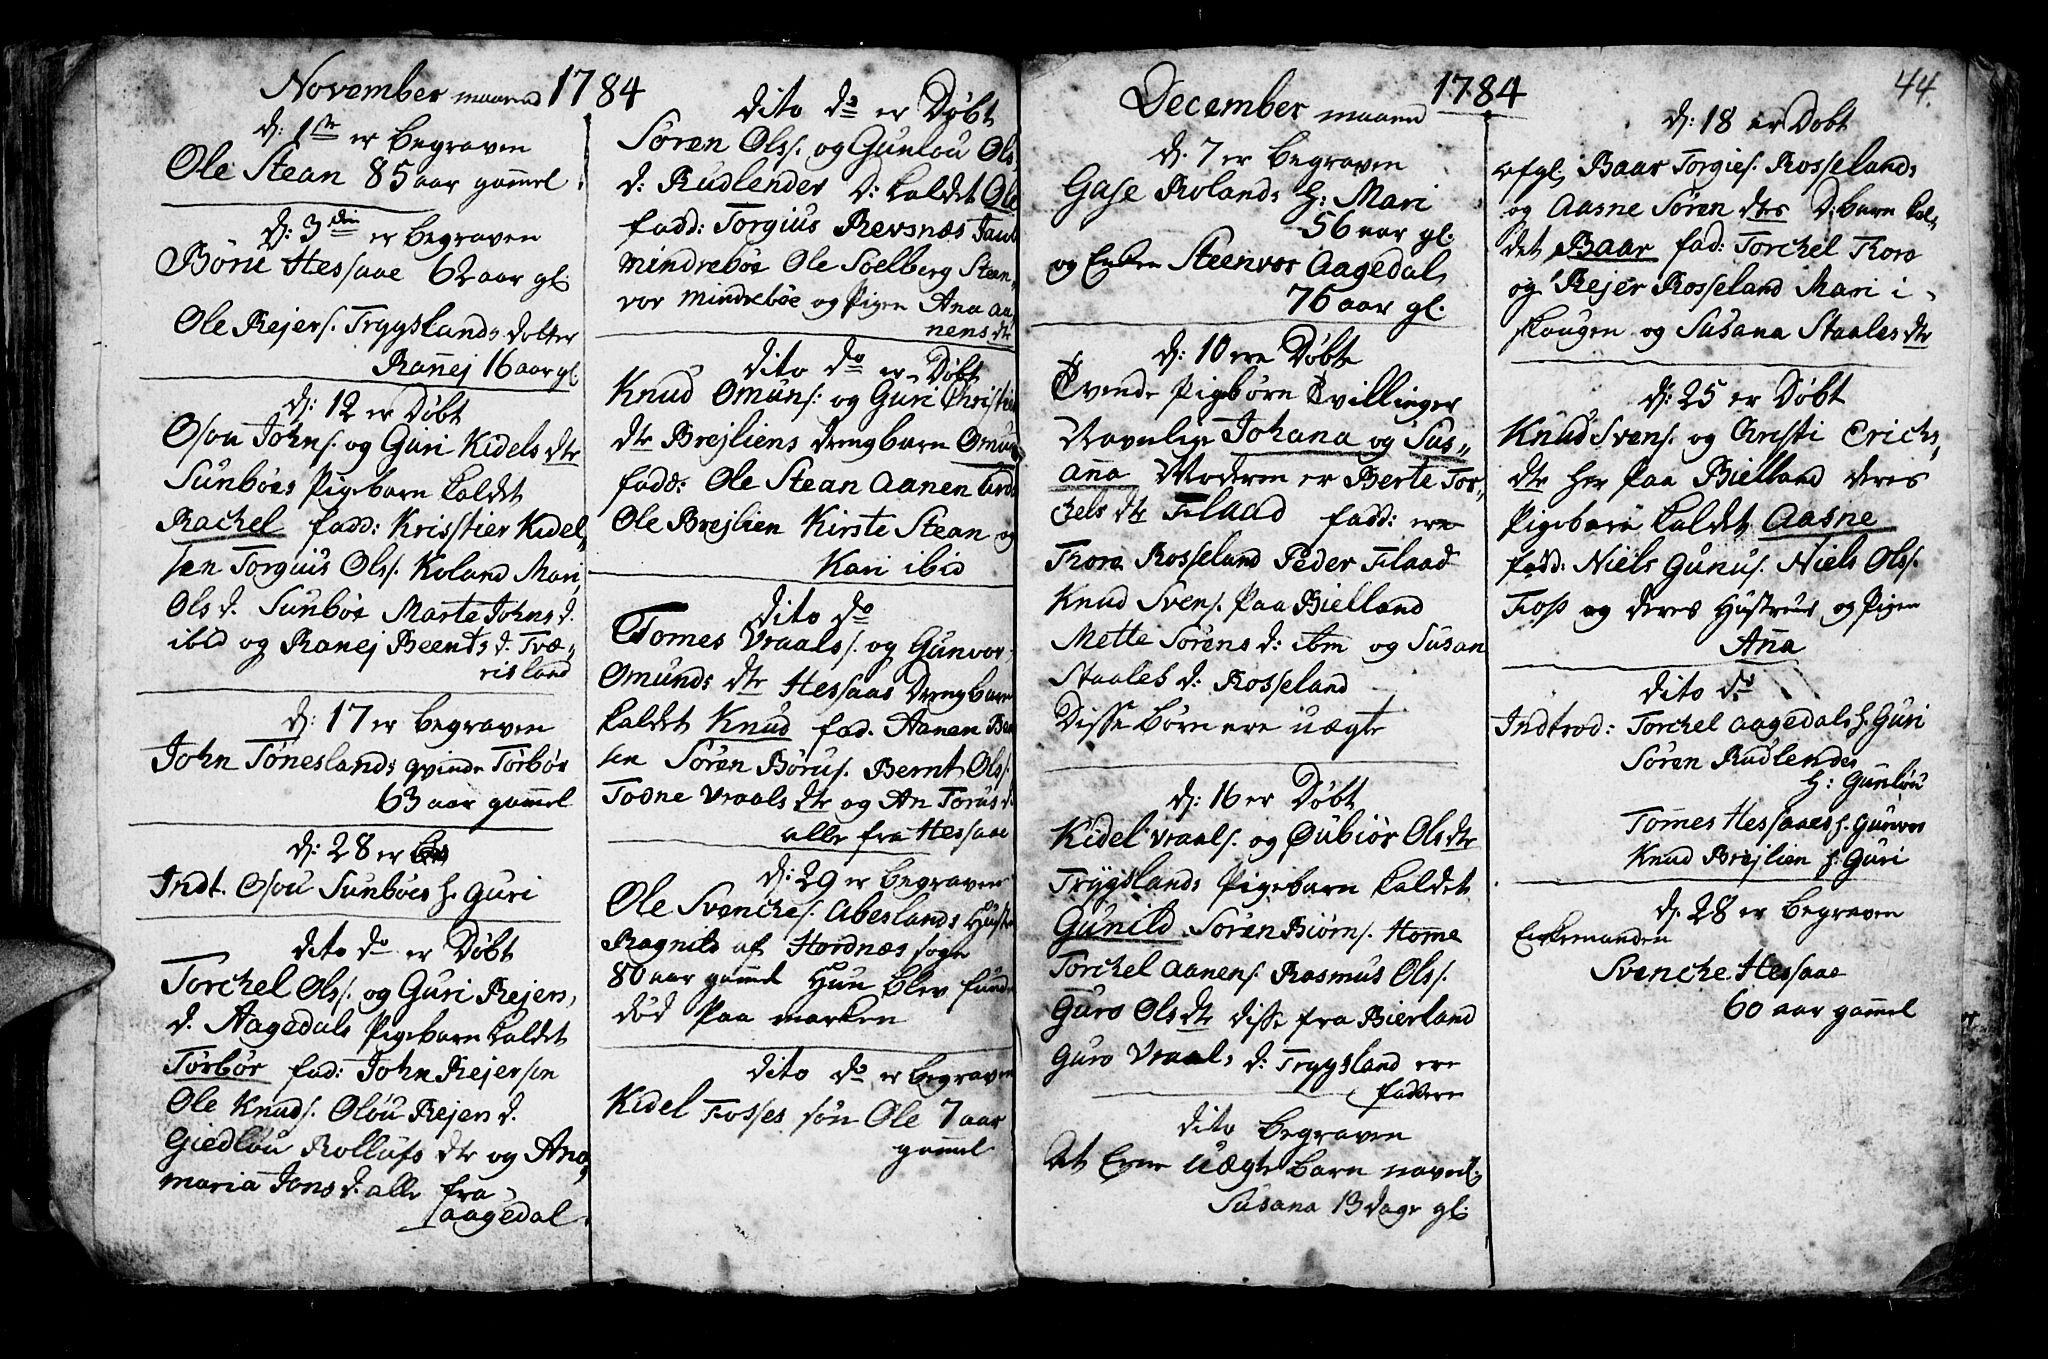 November maaned 1784
d: 1ste er begraven
Ole Stean 85 aar gamel.
d: 3die er begraven
Börü Hessaae 62 aar gl.
Ole Rejers. Trygslands dotter
Ranej 16 aar gl
d: 12 er Døbt
Osou Johns. og Guri Kidels dtr
Sunbøes Pigebarn kaldet
Rachel fadd: Krisstier Kidel-
sen Torgius Ols. Roland Mari
Ols d. Sunbøe Marte Johns d.
ibid og Ranej Beents d. Tvæ-
risland
d: 17 er begraven
John Tøneslands qvinde Tørbør
63 aar gamel
d: 28 er
Indt. Osou Sunbøes h. Guri
dito do er Døbt
Torchel Ols. og Guri Rejers
d. Aagedals Pigebarn kaldet
Tørbør fad: John Rejersen
Ole Knuds. Olöu Rejers d.
Giedlöu Rollufs dtr og Ana
maria Jons d. alle fra
aagedal.
dito do er Døbt
Sören Ols. og Gunlou Ols
d: Rudlender D: kaldet Ole
fadd: Torgius Revsnæs
Mindrebøe Ole Soelberg Steen-
vor Mindrebøe og Pigen Ana Aa-
nens dtr
dito do er Døbt
Knud Omuns: og Guri Christi
dtr Brejliens drengbarn Omun
fadd: Ole Stean Aanen
Ole Brejlien Kirste Stean og
Kari ibid
dito do
Tomes Vraals. og Gunvor
Omunds dtr Hessaas Drengbarn
kaldet Knud fad. Aanen
sen Sören Börus. Bernt Ols.
Todne Vraals dtr og An Torus d.
alle fra Hessaae
d: 29 er begraven
Ole Svenches. Abeslands Hustr
Ragnild af Hordnæs sogn
80 aar gamel Hun blev funde
død Paa marken
dito do er begraven
Kidel Fosses søn Ole 7 aar
gamel
December maaned 1784
44.
d. 7 er begraven
Gase Rolands H: Mari
56 aar gl.
og Enken Steenvor Aagedal
76 aar gl.
d: 10 ere Døbte
Tvende Pigbörn Tvillinger
Navnlig Johana og Sus-
ana Moderen er Berte Tor-
chels dtr Flaad fadd: ere
Thora Rosseland Peder Flaad
Knud Svens. Paa Bielland
Mette Sörens d: ibm og Susan
Staales d: Rosseland
Disse börn ere uægte
d: 16 er Døbt
Kidel Vraals. og Gubiör Ols dtr
Trygslands Pigebarn kaldet
Gunild Sören Biörns. Home
Torchel Aanens. Rasmus Ols.
Guro Ols dtr disse fra Bierland
Guro Vraals d: Trygsland ere
faddere
dito begraven
det Eene Uægte barn navnl:
Susana 13 dage gl:
d: 18 er Døbt
afgl. Baar Torgies. Rosselands
og Aasne Sören dtrs D: barn kal-
det Baar fad: Torchel Thoro
og Rejer Rosseland Mari i
skougen og Susana Staales dtr
d: 25 er Døbt
Knud Svens. og Christi Erichs
dtr her Paa Bielland deres
Pigebarn kaldet Aasne
fadd: Niels Gunus. Niels Ols.
Foss og deres Hustruer og Pigen
Ana
dito do
Indtrod: Torchel Aagedals h. Guri
Sören Rudlendes
h: Gunlöu
Tomes Hessaaes h. Gunvor
Knud Brejlien h: Guri
d. 28 er begraven
Enkemanden
Svenche Hessaae
60 aar gamel